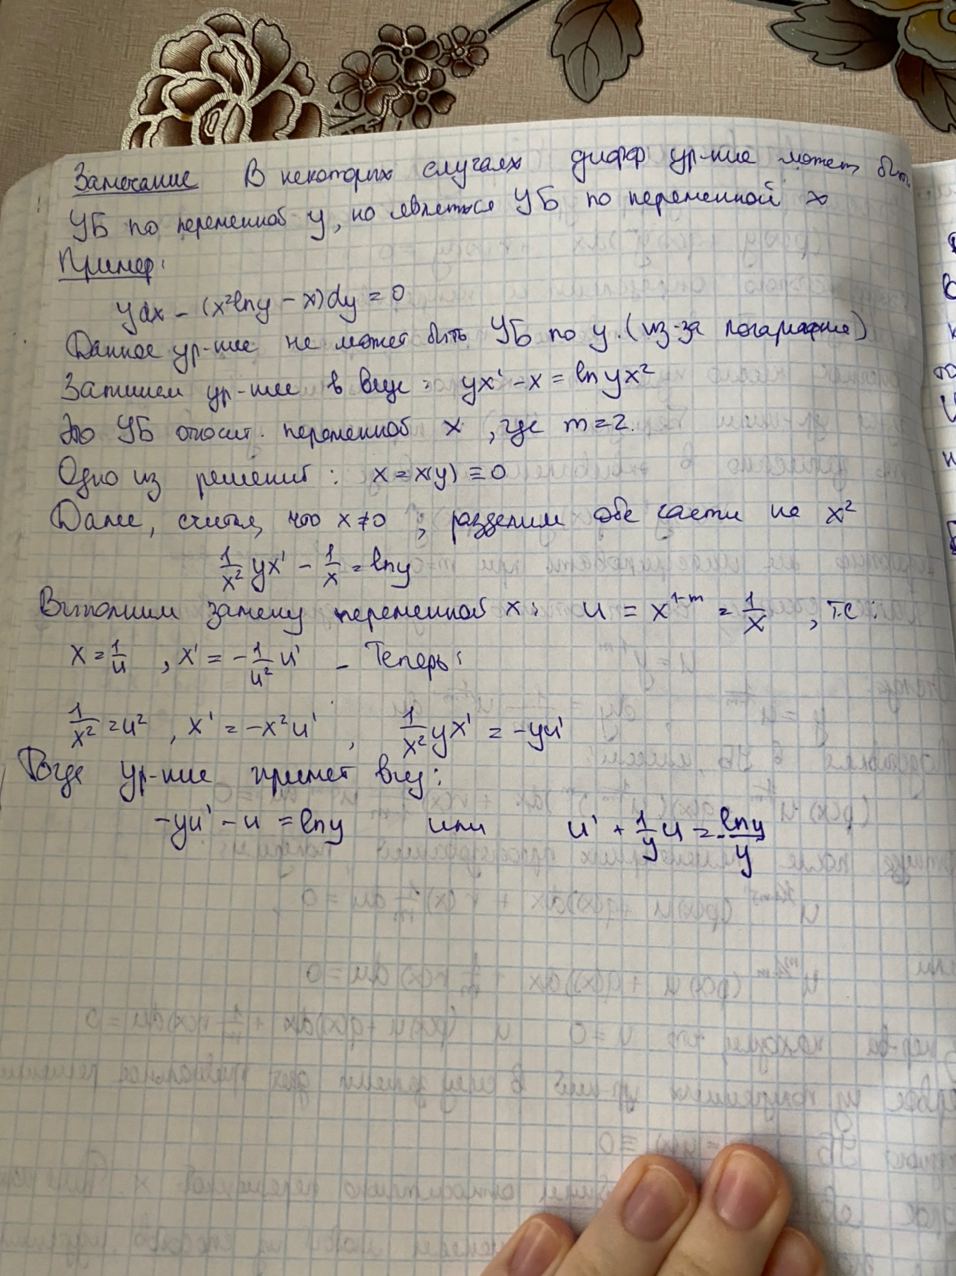 Замечание В некоторых случаях дифф ур-ние может быть
УБ по переменной y, но являться УБ по переменной x
Пример:
ydx - (x²lny - x)dy = 0
Данное ур-ние не может быть УБ по y. (из-за логарифма)
Запишем ур-ние в виде: yx' - x = lnyx²
Это УБ относит. переменной x, где m=2.
Одно из решений: x = x(y) ≡ 0
Далее, считая, что x≠0, разделим обе части на x²
1/x² yx' - 1/x = lny
Выполним замену переменной x: u = x^(1-m) = 1/x, т.е:
x = 1/u, x' = -1/u² u' - Теперь:
1/x² = u², x' = -x²u', 1/x² yx' = -yu'
Тогда ур-ние примет вид:
-yu' - u = lny или u' + 1/y u = -lny/y